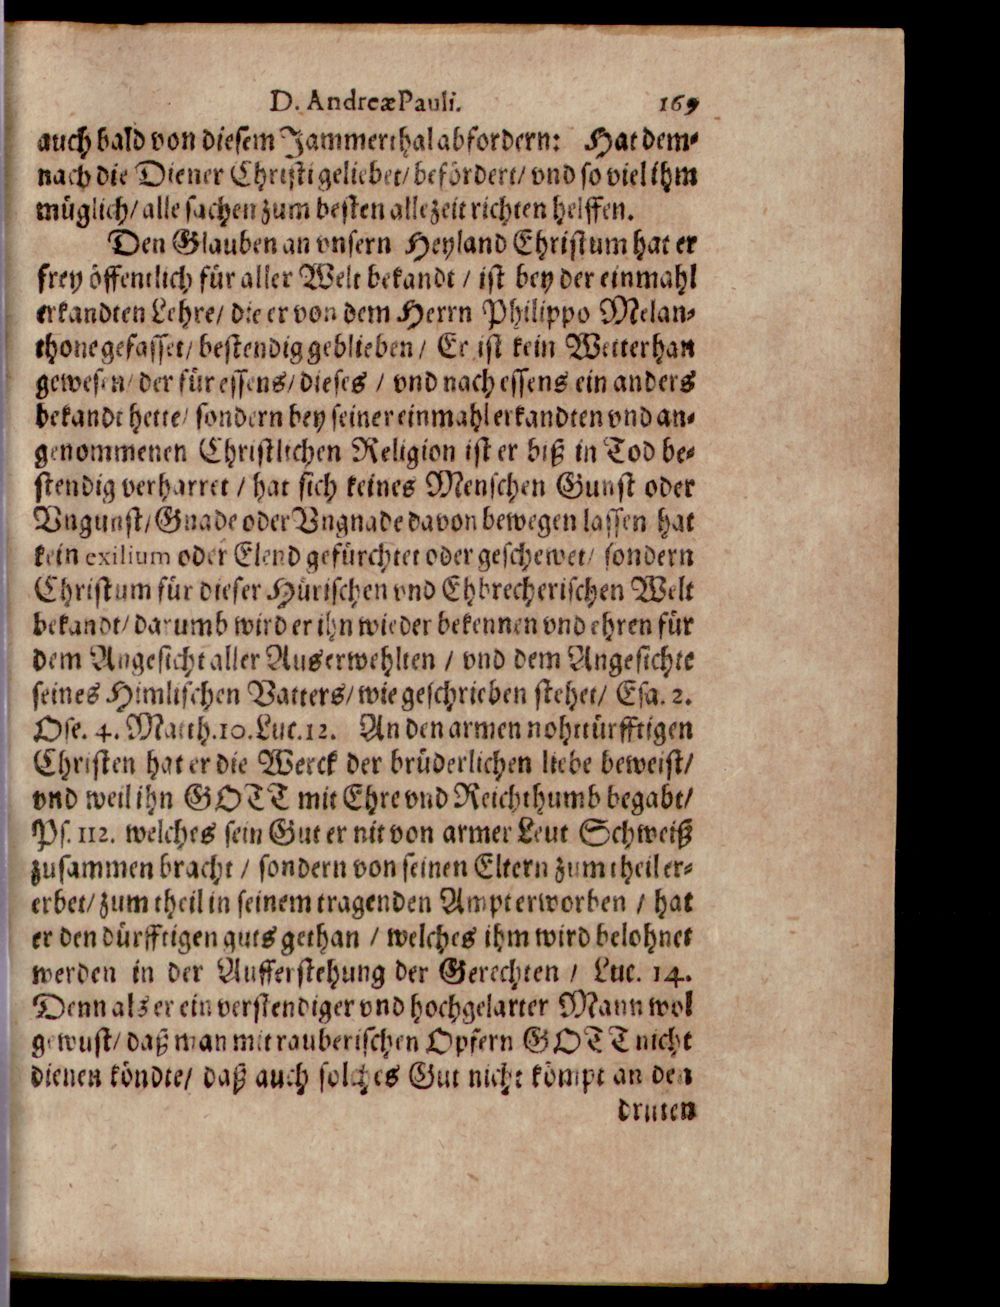 D. Andreæ Pauli. 169
auch bald von diesem Jammerthal abfordern: Hat dem-
nach die Diener Christi geliebet/ befördert/ vnd so viel ihm
müglich/ alle sachen zum besten allezeit richten helffen.
Den Glauben an vnsern Heyland Christum hat er
frey öffentlich für aller Welt bekandt / ist bey der einmahl
erkandten Lehre/ die er von dem Herrn Philippo Melan-
thone gefasset/ bestendig geblieben / Er ist kein Wetterhan
gewesen/ der für essens/ dieses / vnd nach essens ein anders
bekandt hette/ sondern bey seiner einmahl erkandten vnd an-
genommenen Christlichen Religion ist er biß in Tod be-
stendig verharret / hat sich keines Menschen Gunst oder
Vngunst/ Gnade oder Vngnade davon bewegen lassen hat
kein exilium oder Elend gefürchtet oder geschewet/ sondern
Christum für dieser Hürischen vnd Ehbrecherischen Welt
bekandt/ darumb wird er ihn wieder bekennen vnd ehren für
dem Angesicht aller Auserwehlten / vnd dem Angesichte
seines Himlischen Vatters/ wie geschrieben stehet/ Esa. 2.
Ose. 4. Matth. 10. Luc. 12. An den armen nohttürfftigen
Christen hat er die Werck der brüderlichen liebe beweist/
vnd weil ihn GOTT mit Ehre vnd Reichthumb begabt/
Ps. 112. welches sein Gut er nit von armer Leut Schweiß
zusammen bracht / sondern von seinen Eltern zum theil er-
erbet/ zum theil in seinem tragenden Ampt erworben / hat
er den dürfftigen guts gethan / welches ihm wird belohnet
werden in der Aufferstehung der Gerechten / Luc. 14.
Denn als er ein verstendiger vnd hochgelarter Mann wol
gewust/ daß man mit rauberischen Opfern GOTT nicht
dienen köndte/ daß auch solches Gut nicht kömpt an den
dritten